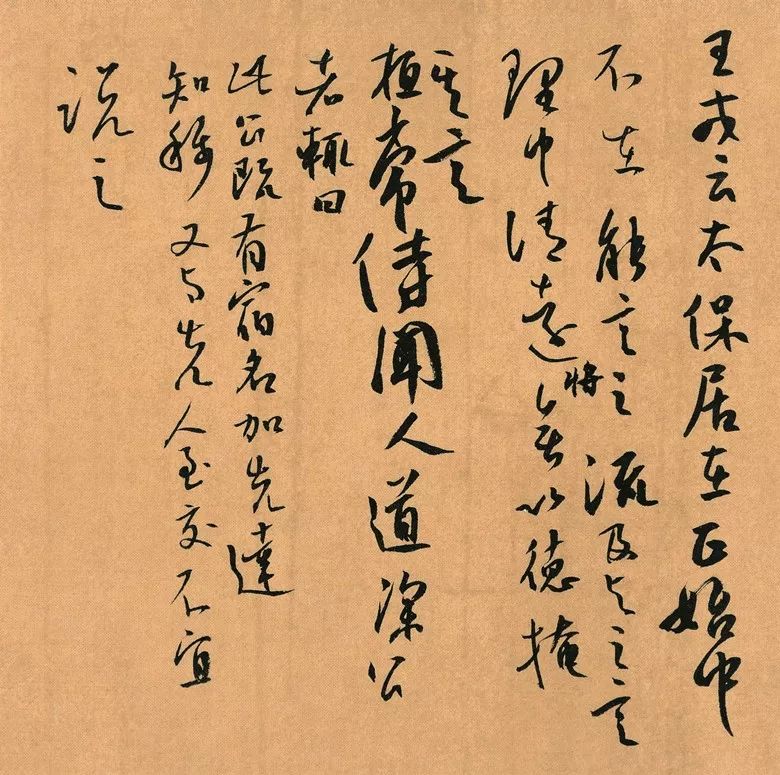 王戎云太保居在正始中
不在能言之流及与之言
理中清遠將無以德掩
其言
桓常侍聞人道深公
者輒曰
此公既有宿名加先達
知稱又与先人至交不宜
説之